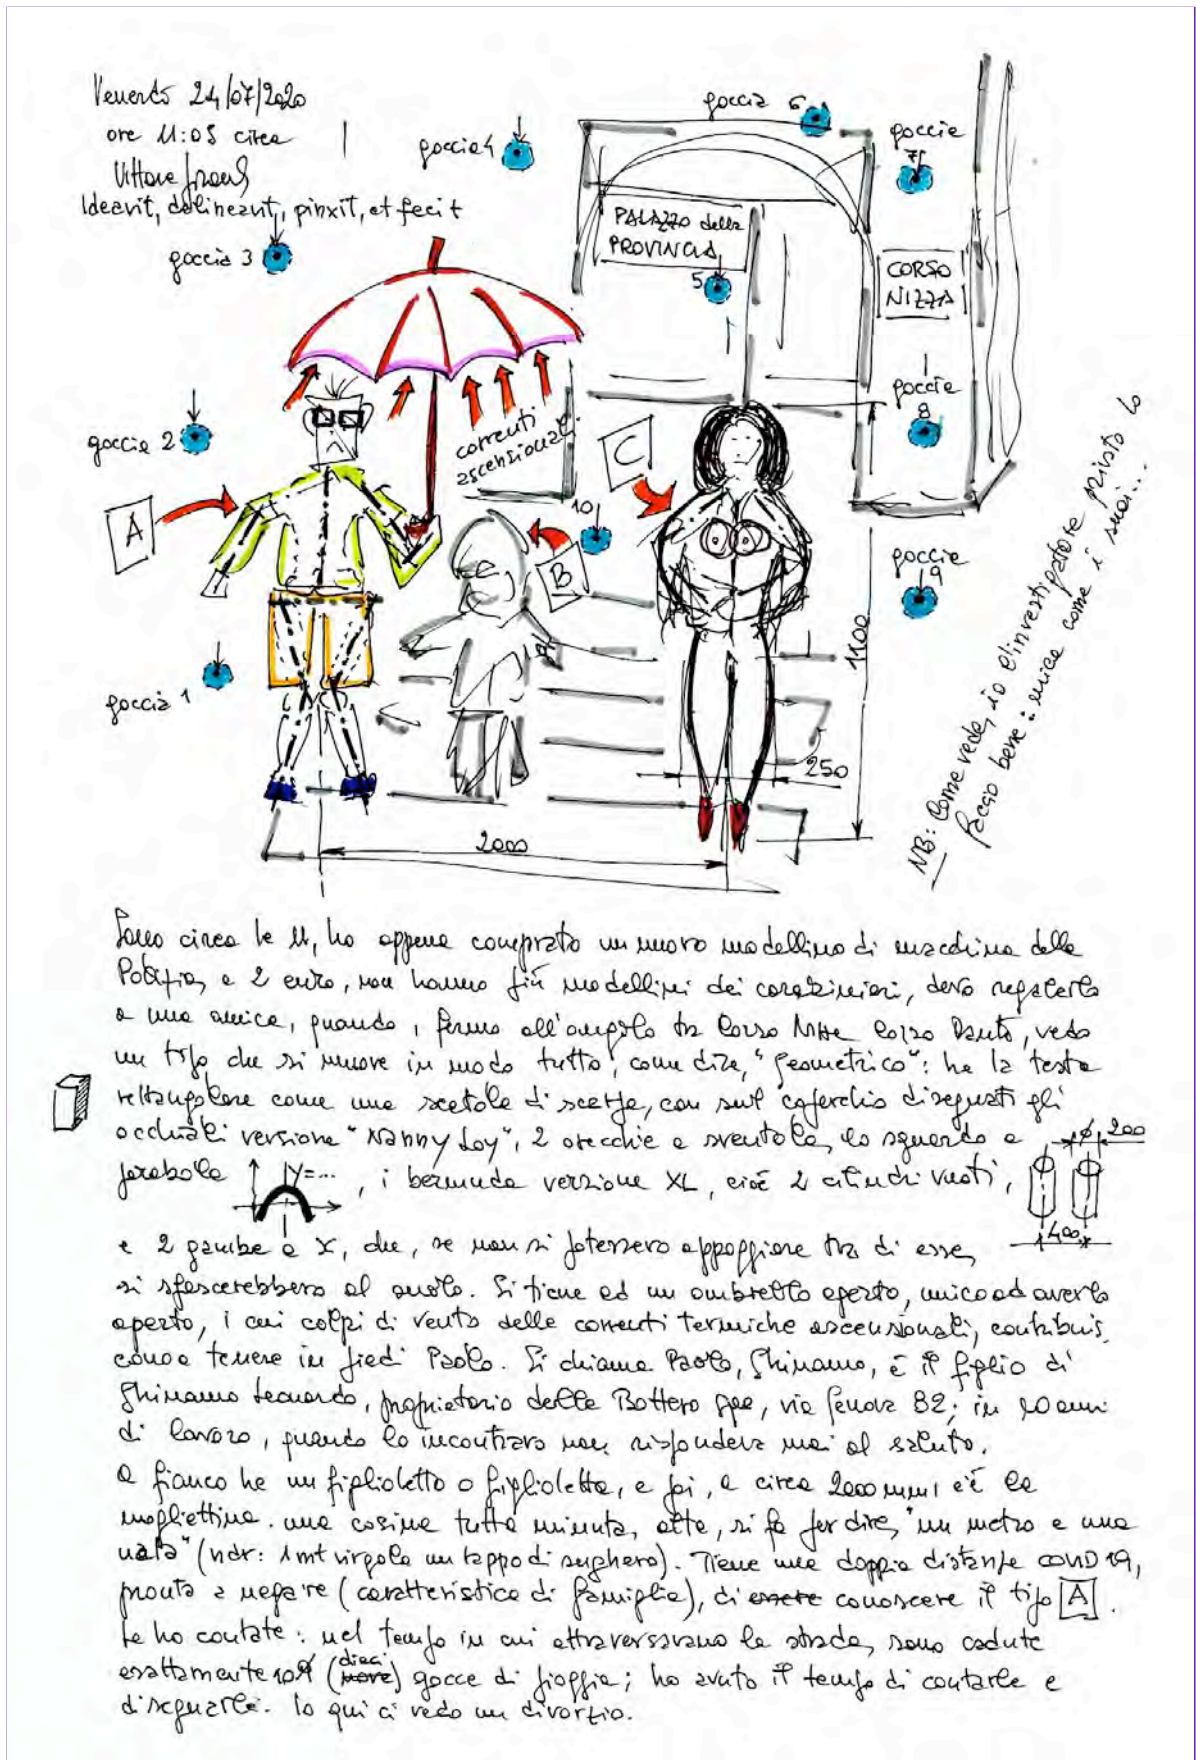 Venerdì 24/07/2020
ore 11:05 circa
Vittore
Ideavit, delineavit, pinxit, et fecit
goccia 3
goccia 4
goccia 6
goccia
7
PALAZZO della
PROVINCIA
5
CORSO
NIZZA
goccia 2
correnti
ascensionali
C
goccia
8
A
10
B
goccia
9
goccia 1
1100
250
2000
NB: Come vede, io l'investigatore privato lo
faccio bene: mica come i suoi...
Sono circa le 11, ho appena comprato un nuovo modellino di macchina della
Polizia, a 2 euro, non hanno più modellini dei carabinieri, devo regalarlo
a una amica, quando, fermo all'angolo tra Corso Nizza Corso Dante, vedo
un tipo che si muove in modo tutto, come dire, "geometrico": ha la testa
rettangolare come una scatola di scarpe, con sul coperchio disegnati gli
occhiali versione "Nanny Loy", 2 orecchie a sventola, lo sguardo a
parabola y=... , i bermuda versione XL, cioè 2 cilindri vuoti,
ø 200
400
e 2 gambe a X, che, se non si potessero appoggiare tra di esse,
si sfascerebbero al suolo. Si tiene ad un ombrello aperto, unico ad averlo
aperto, i cui colpi di vento delle correnti termiche ascensionali, contribuis,
cono a tenere in piedi Paolo. Si chiama Paolo, Ghinamo, è il figlio di
Ghinamo Leonardo, proprietario della Bottero spa, via Genova 82; in 20 anni
di lavoro, quando lo incontravo non rispondeva mai al saluto.
A fianco ha un figlioletto o figlioletta, e poi, a circa 2000 mm, c'è la
mogliettina. una cosina tutta minuta, alta, si fa per dire, "un metro e una
(ndr: 1mt virgola un tappo di sughero). Tiene una doppia distanza COVID 19,
pronta a negare (caratteristica di famiglia), di essere conoscere il tipo A.
Le ho contate: nel tempo in cui attraversavano la strada, sono cadute
esattamente 10 (nove dieci) gocce di pioggia; ho avuto il tempo di contarle e
disegnarle. Io qui ci vedo un divorzio.